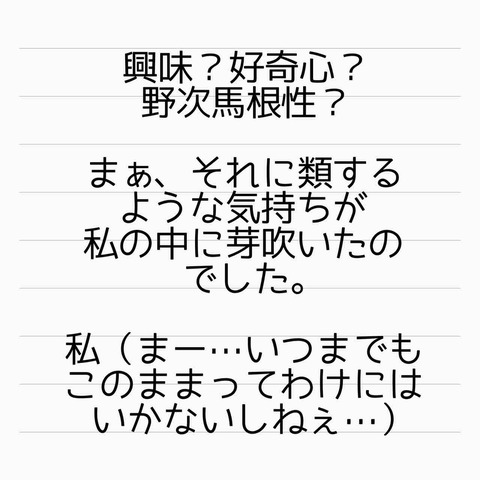 興味？好奇心？
野次馬根性？
まぁ、それに類する
ような気持ちが
私の中に芽吹いたの
でした。
私（まー…いつまでも
このままってわけには
いかないしねぇ…）